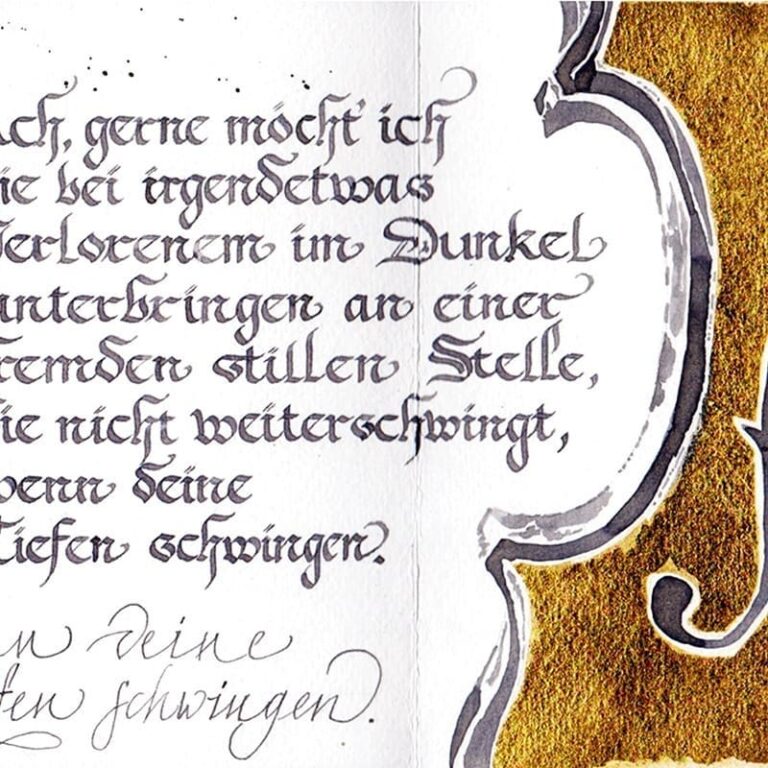 Ach, gerne möcht' ich
ie bei irgendetwas
Verlorenem im Dunkel
unterbringen an einer
fremden stillen Stelle,
ie nicht weiterschwingt,
wenn deine
Tiefen schwingen.
deine
schwingen.